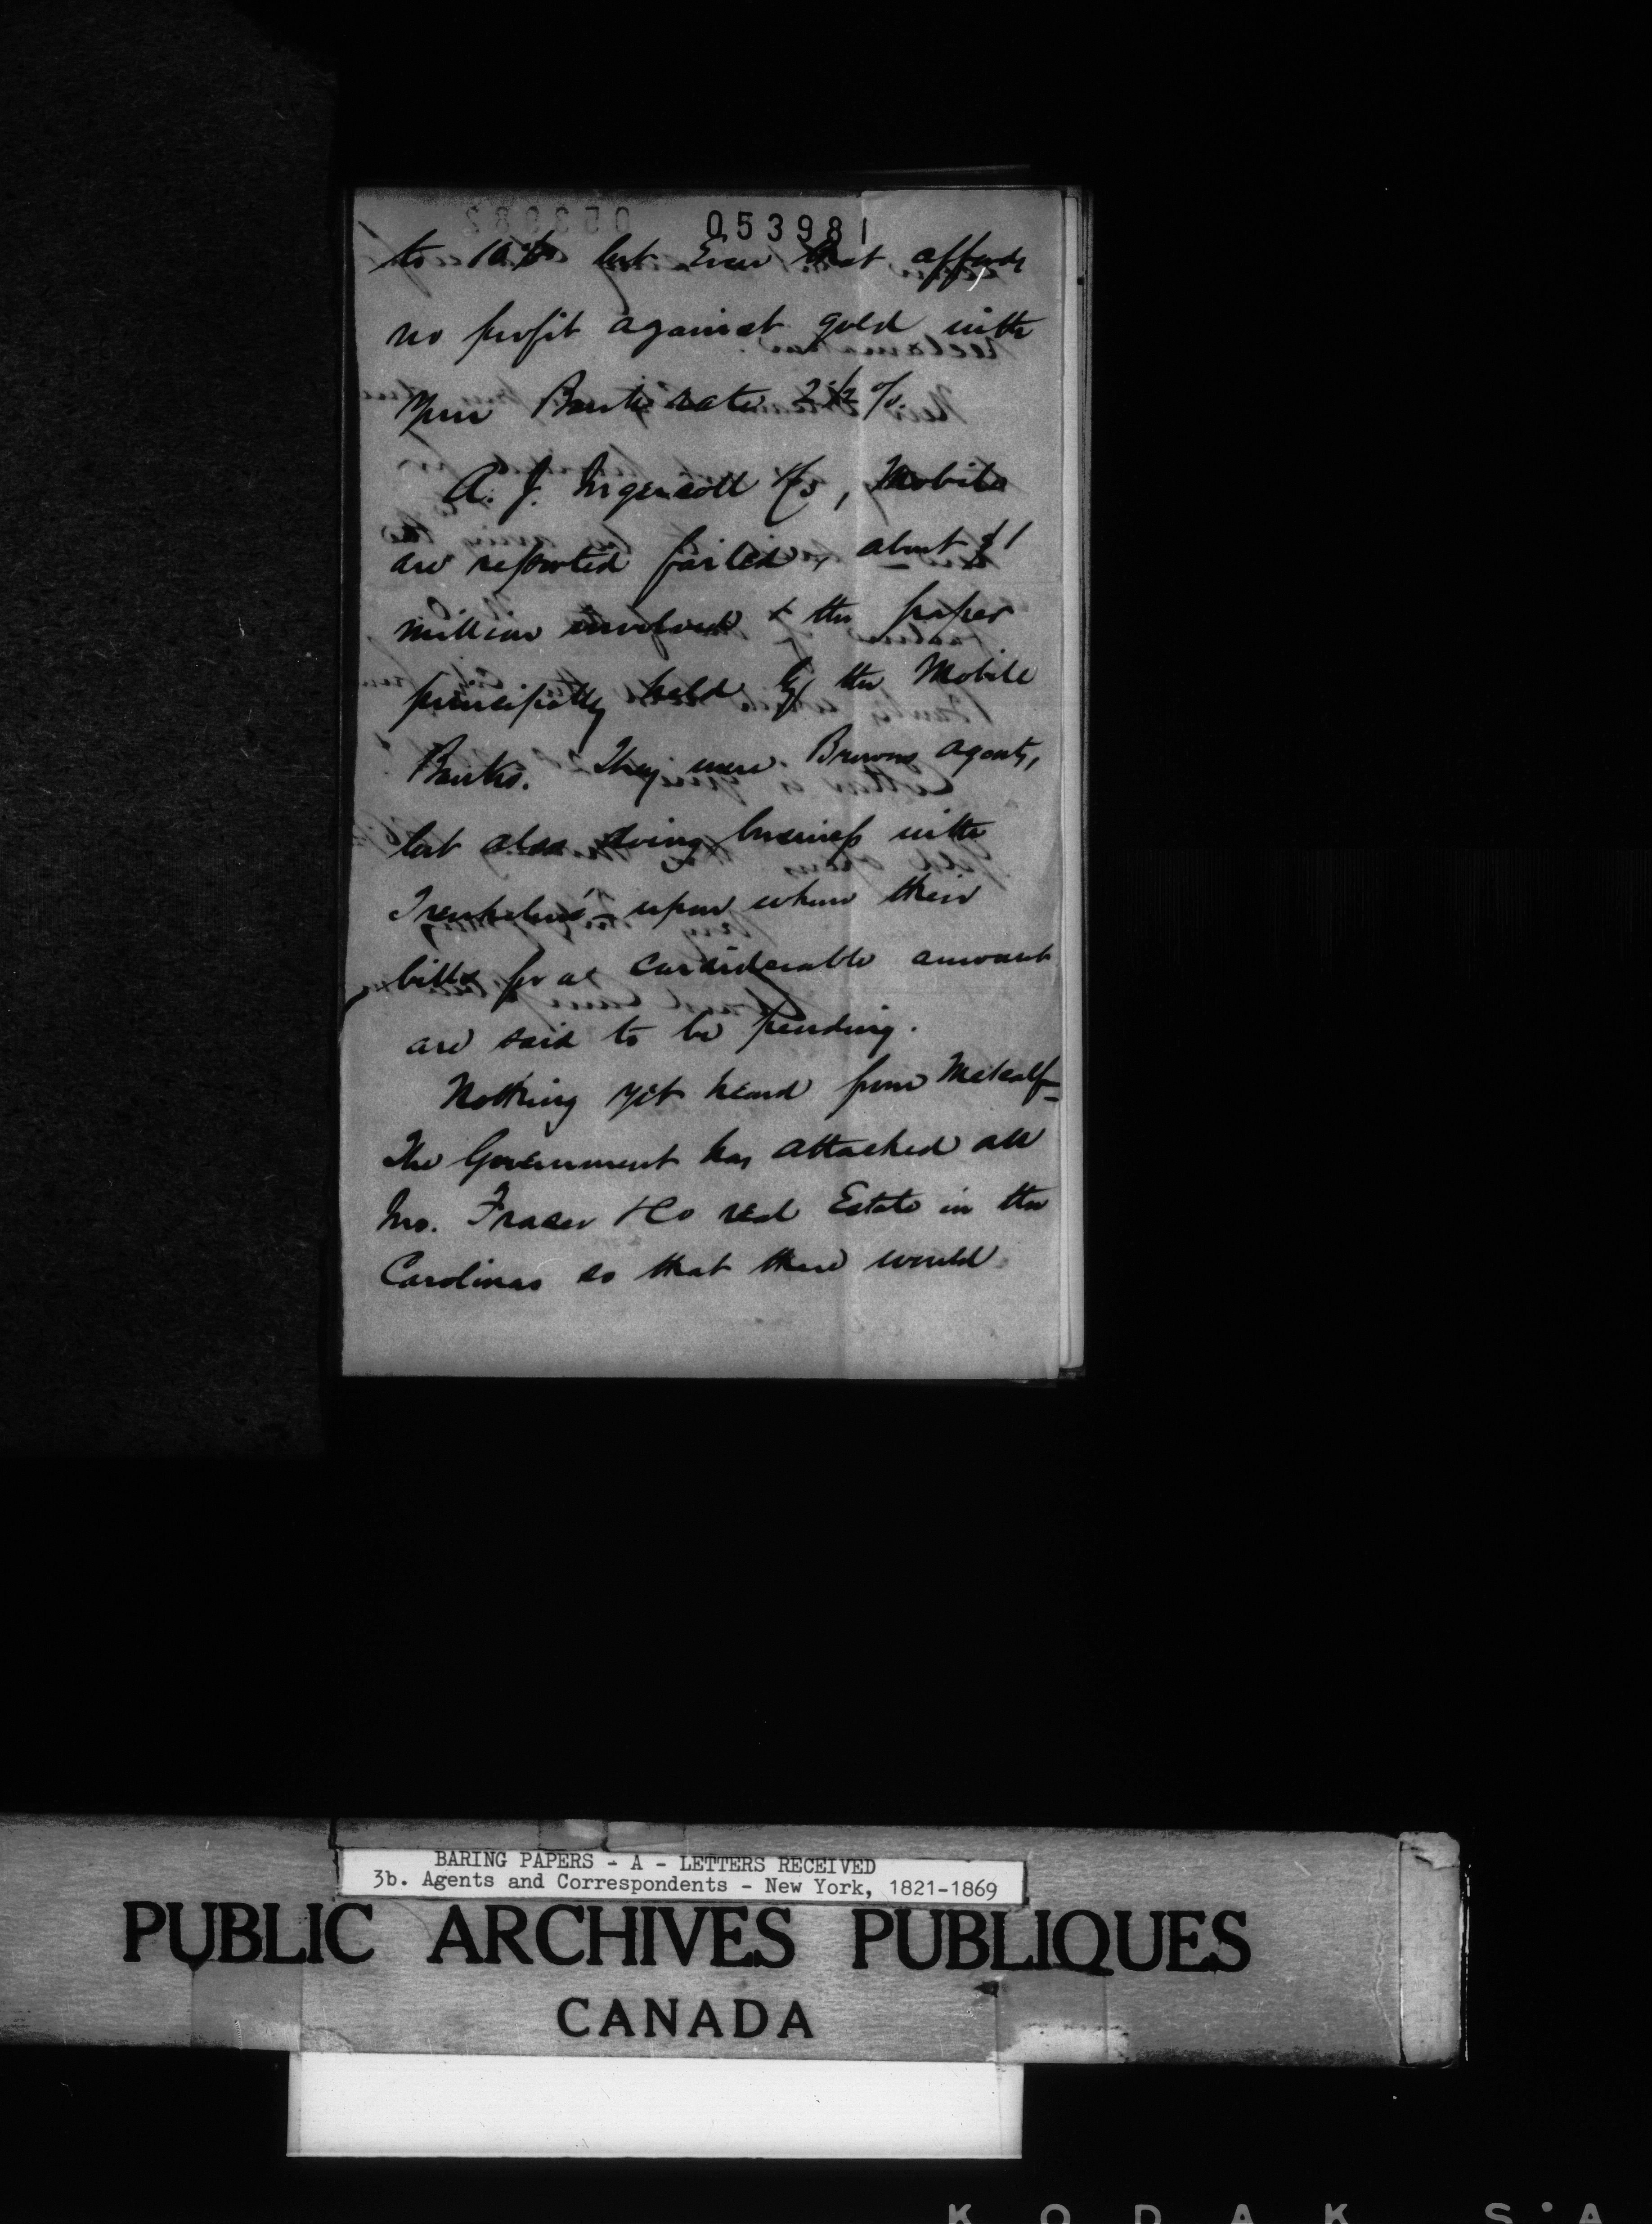 053981
to 10% but Even that affords
no profit against gold with
your Bank rate 2½ %.
A. J. Ingersoll &Co, Mobile
are reported failed, about $1
million involved & the paper
principally held by the Mobile
Banks. They were Browns agents,
but also doing business with
Trenholm's upon whom their
bills for a considerable amount
are said to be pending.
Nothing yet heard from Metcalf—
The Government has attached all
Jno. Fraser &Co real Estate in the
Carolinas so that there would
BARING PAPERS - A - LETTERS RECEIVED
3b. Agents and Correspondents - New York, 1821-1869
PUBLIC ARCHIVES PUBLIQUES
CANADA
KODAK S·A